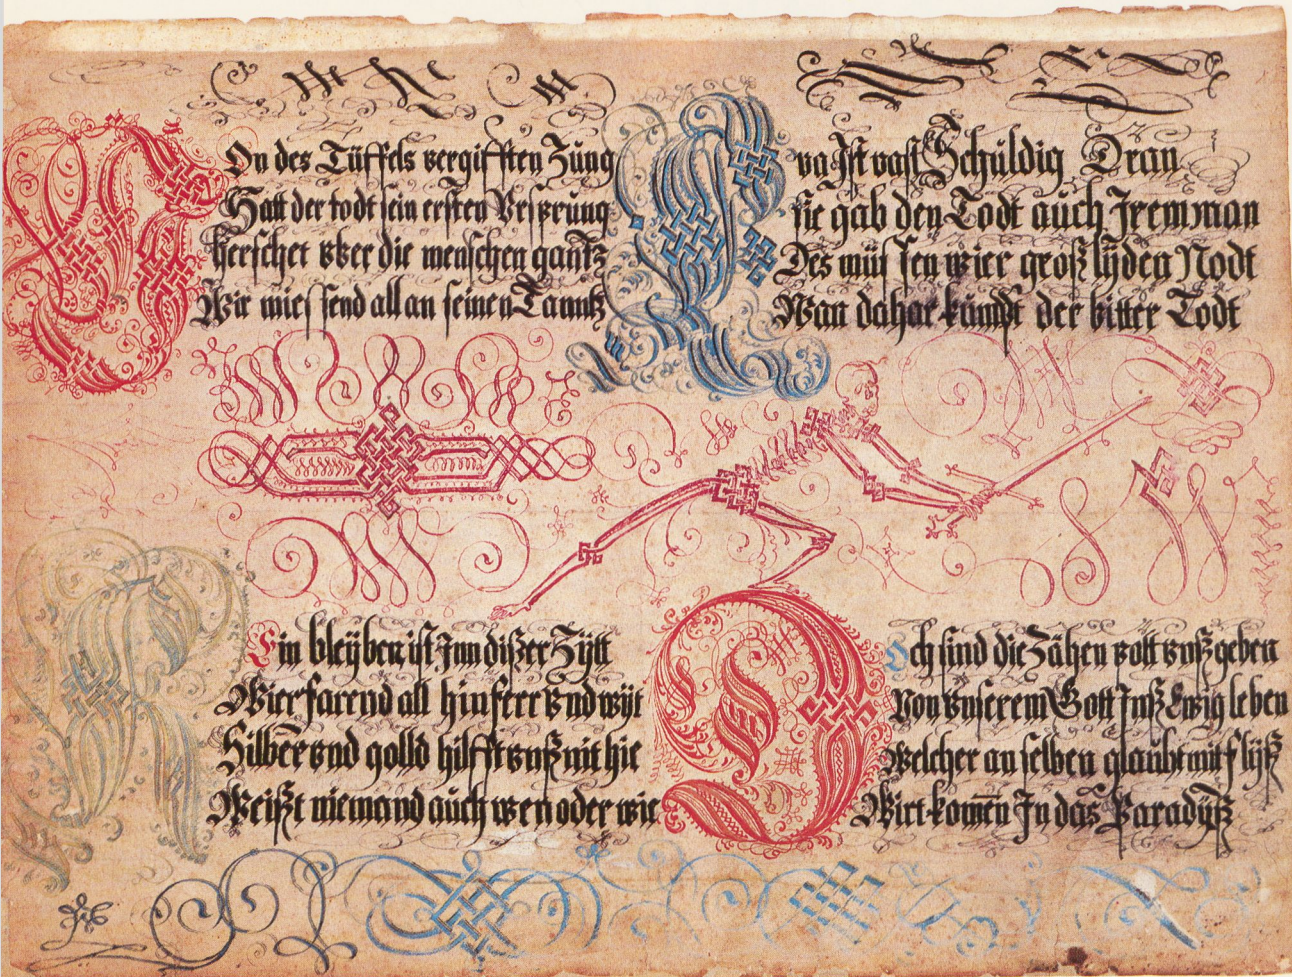 Von des Tüffels vergifften Zung
Hatt der todt sein ersten Vrsprung
herschet vber die menschen gantz
Wir miessend all an seinen Tanntz
Eva Ist vast Schuldig Dran
sie gab den Todt auch Irem man
Des müssen wier groß lyden Nodt
Wan dahar kumpt der bitter Todt
Kein bleyben ist Inn dißer Zytt
Wier farend all hin ferr vnd wyt
Silber vnd golld hilfft vnß nit hie
Weißt niemand auch wen oder wie
Doch sind die Zähen pott vnß geben
Von vnserem Gott Inß Ewig leben
Welcher an selben glaubt mit flyß
Wirt komen In das Paradyß